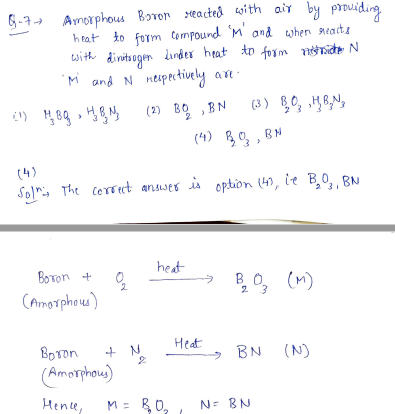 Q-7→ Amorphous Boron reacted with air by providing
heat to form compound 'M' and when reacts
with dinitrogen under heat to form N
'M' and N respectively are.
(1) H3BO3, H3B3N3 (2) BO2, BN (3) B2O3, H3B3N3
(4) B2O3, BN
(4)
Soln:→ The correct answer is option (4), i.e B2O3, BN
Boron + O2 heat→ B2O3 (M)
(Amorphous)
Boron + N2 Heat→ BN (N)
(Amorphous)
Hence, M = B2O3, N = BN